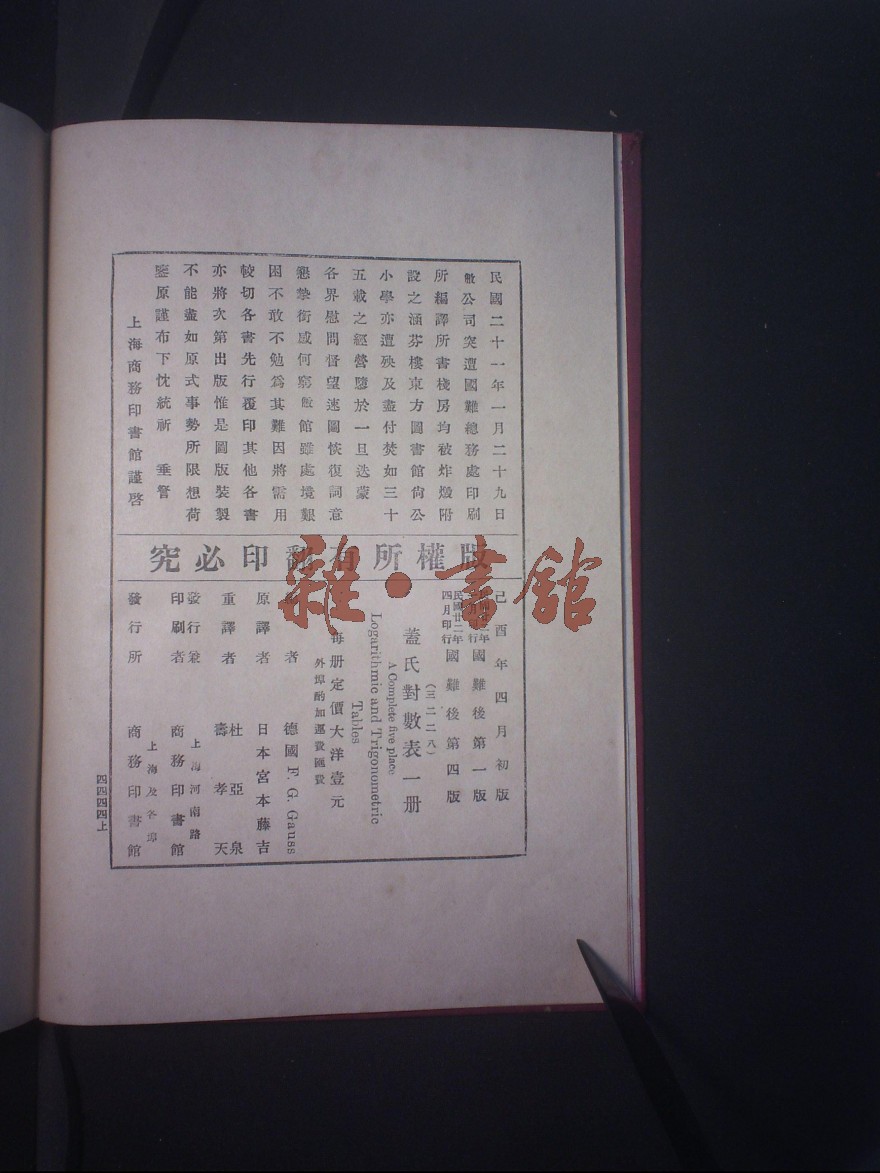 民國二十一年一月二十九日
敝公司突遭國難總務處印刷
所編譯所書棧房均被炸燬附
設之涵芬樓東方圖書館尚公
小學亦遭殃及盡付焚如三十
五載之經營隳於一旦迭蒙
各界慰問督望速圖恢復詞意
懇摯銜感何窮敝館雖處境艱
困不敢不勉爲其難因將需用
較切各書先行覆印其他各書
亦將次第出版惟是圖版裝製
不能盡如原式事勢所限想荷
鑒原謹布下忱統祈 垂詧
上海商務印書館謹啓
版權所有翻印必究
己酉年四月初版
國難後第一版
民國廿二年四月印行 國難後第四版
(三二二八)
蓋氏對數表一册
A Complete five place
Logarithmic and Trigonometric
Tables
每册定價大洋壹元
外埠酌加運費匯費
者 德國 F. G. Gauss
原譯者 日本宮本藤吉
重譯者 杜亞泉 壽孝天
發行兼印刷者 上海河南路 商務印書館
發行所 上海及各埠 商務印書館
四四四四上
雜·書館